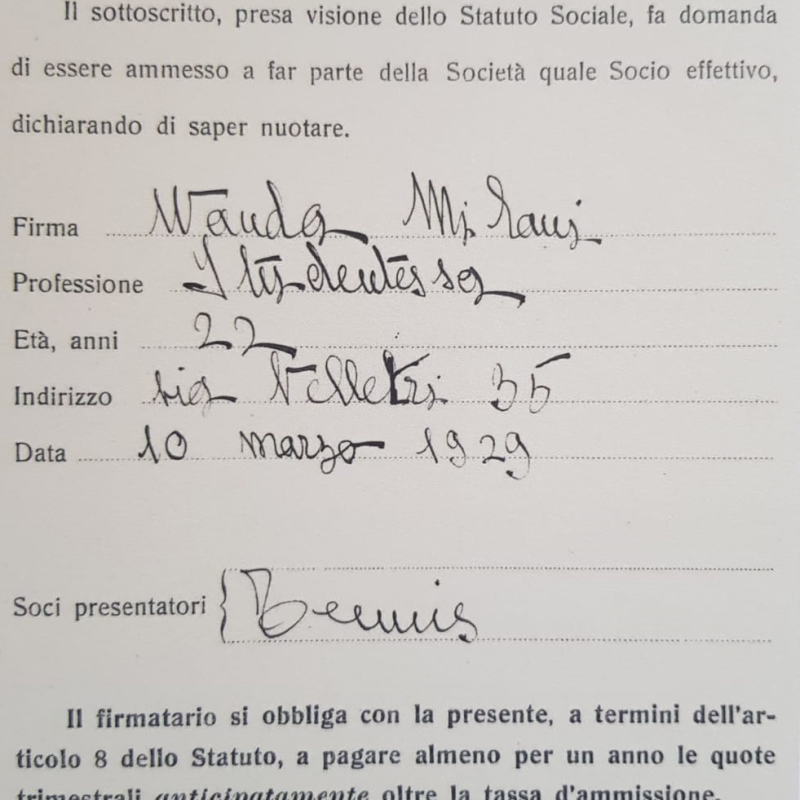 Il sottoscritto, presa visione dello Statuto Sociale, fa domanda
di essere ammesso a far parte della Società quale Socio effettivo,
dichiarando di saper nuotare.
Firma Wanda Milani
Professione Studentessa
Età, anni 22
Indirizzo via Velletri 35
Data 10 marzo 1929
Soci presentatori
Il firmatario si obbliga con la presente, a termini dell'ar-
ticolo 8 dello Statuto, a pagare almeno per un anno le quote
trimestrali anticipatamente oltre la tassa d'ammissione.